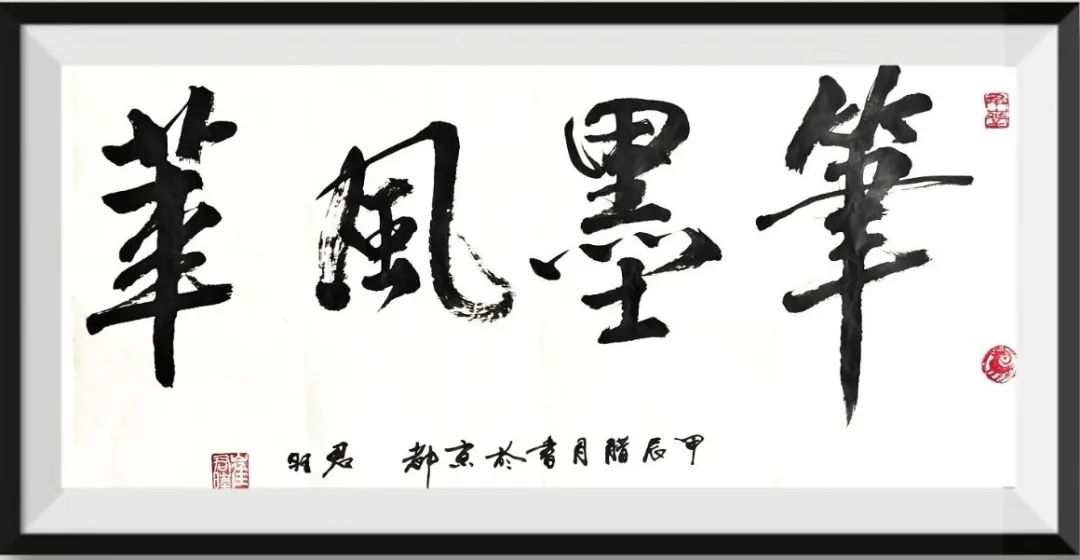 筆墨風華
甲辰腊月書於京都 君